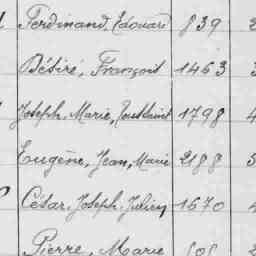 Ferdinand, Edouard 839 2
Désiré, François 1463 3
Joseph, Marie, Toussaint 1798 4
Eugène, Jean, Marie 2188 5
César, Joseph, Julien 1670 4
Pierre, Marie